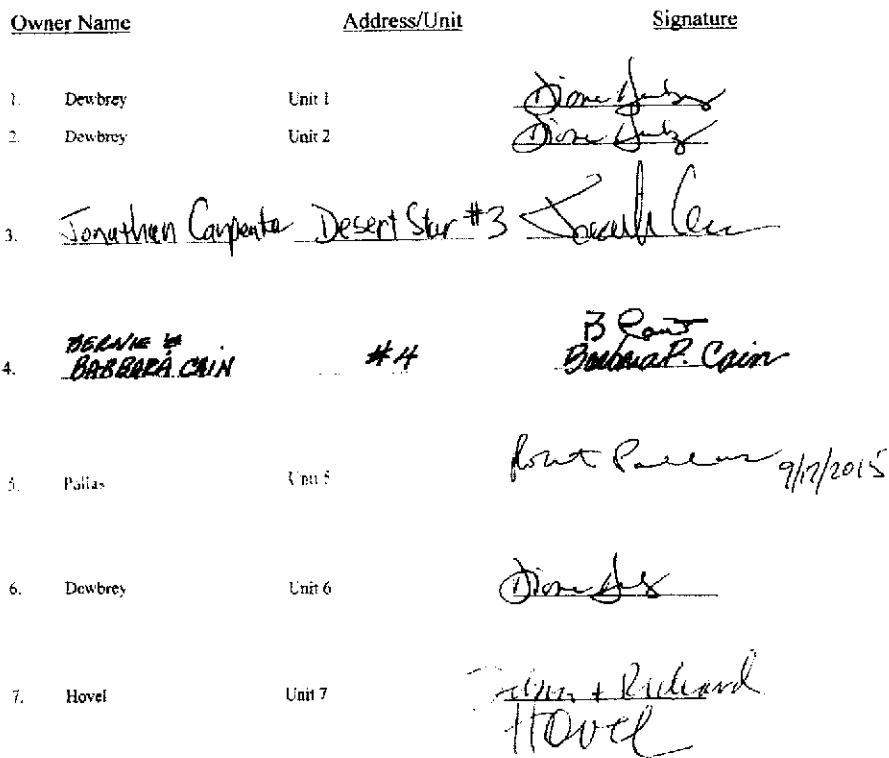 Owner Name Address/Unit Signature
1. Dewbrey Unit 1 Diane
2. Dewbrey Unit 2 Diane
3. Jonathan Carpenter Desert Star #3
4. BERNIE & BARBARA CAIN #4 B
Barbara P. Cain
5. Pallas Unit 5 9/17/2015
6. Dewbrey Unit 6 Diane
7. Hovel Unit 7 + Richard
Hovel